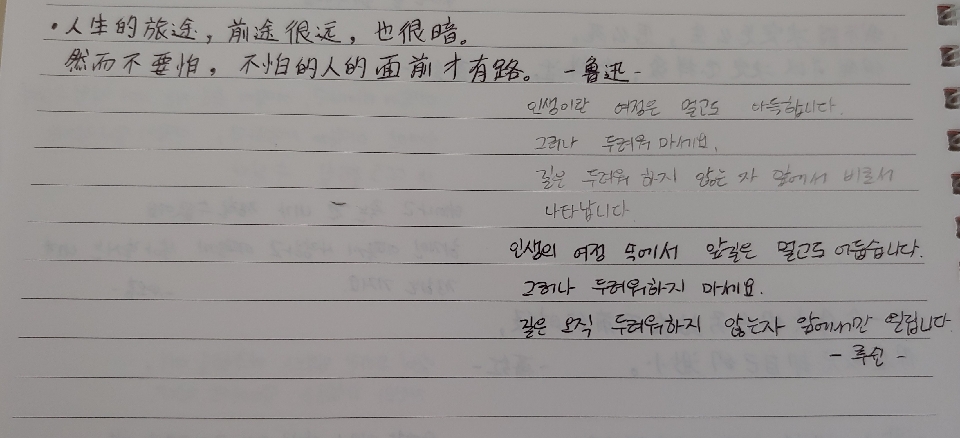 ·人生的旅途，前途很远，也很暗。
然而不要怕，不怕的人的面前才有路。 -鲁迅-
인생이란 여정은 멀고도 아득합니다.
그러나 두려워 마세요.
길은 두려워 하지 않는 자 앞에서 비로서
나타납니다
인생의 여정 속에서 앞길은 멀고도 어둡습니다.
그러나 두려워하지 마세요.
길은 오직 두려워하지 않는자 앞에서만 열립니다.
- 루쉰 -